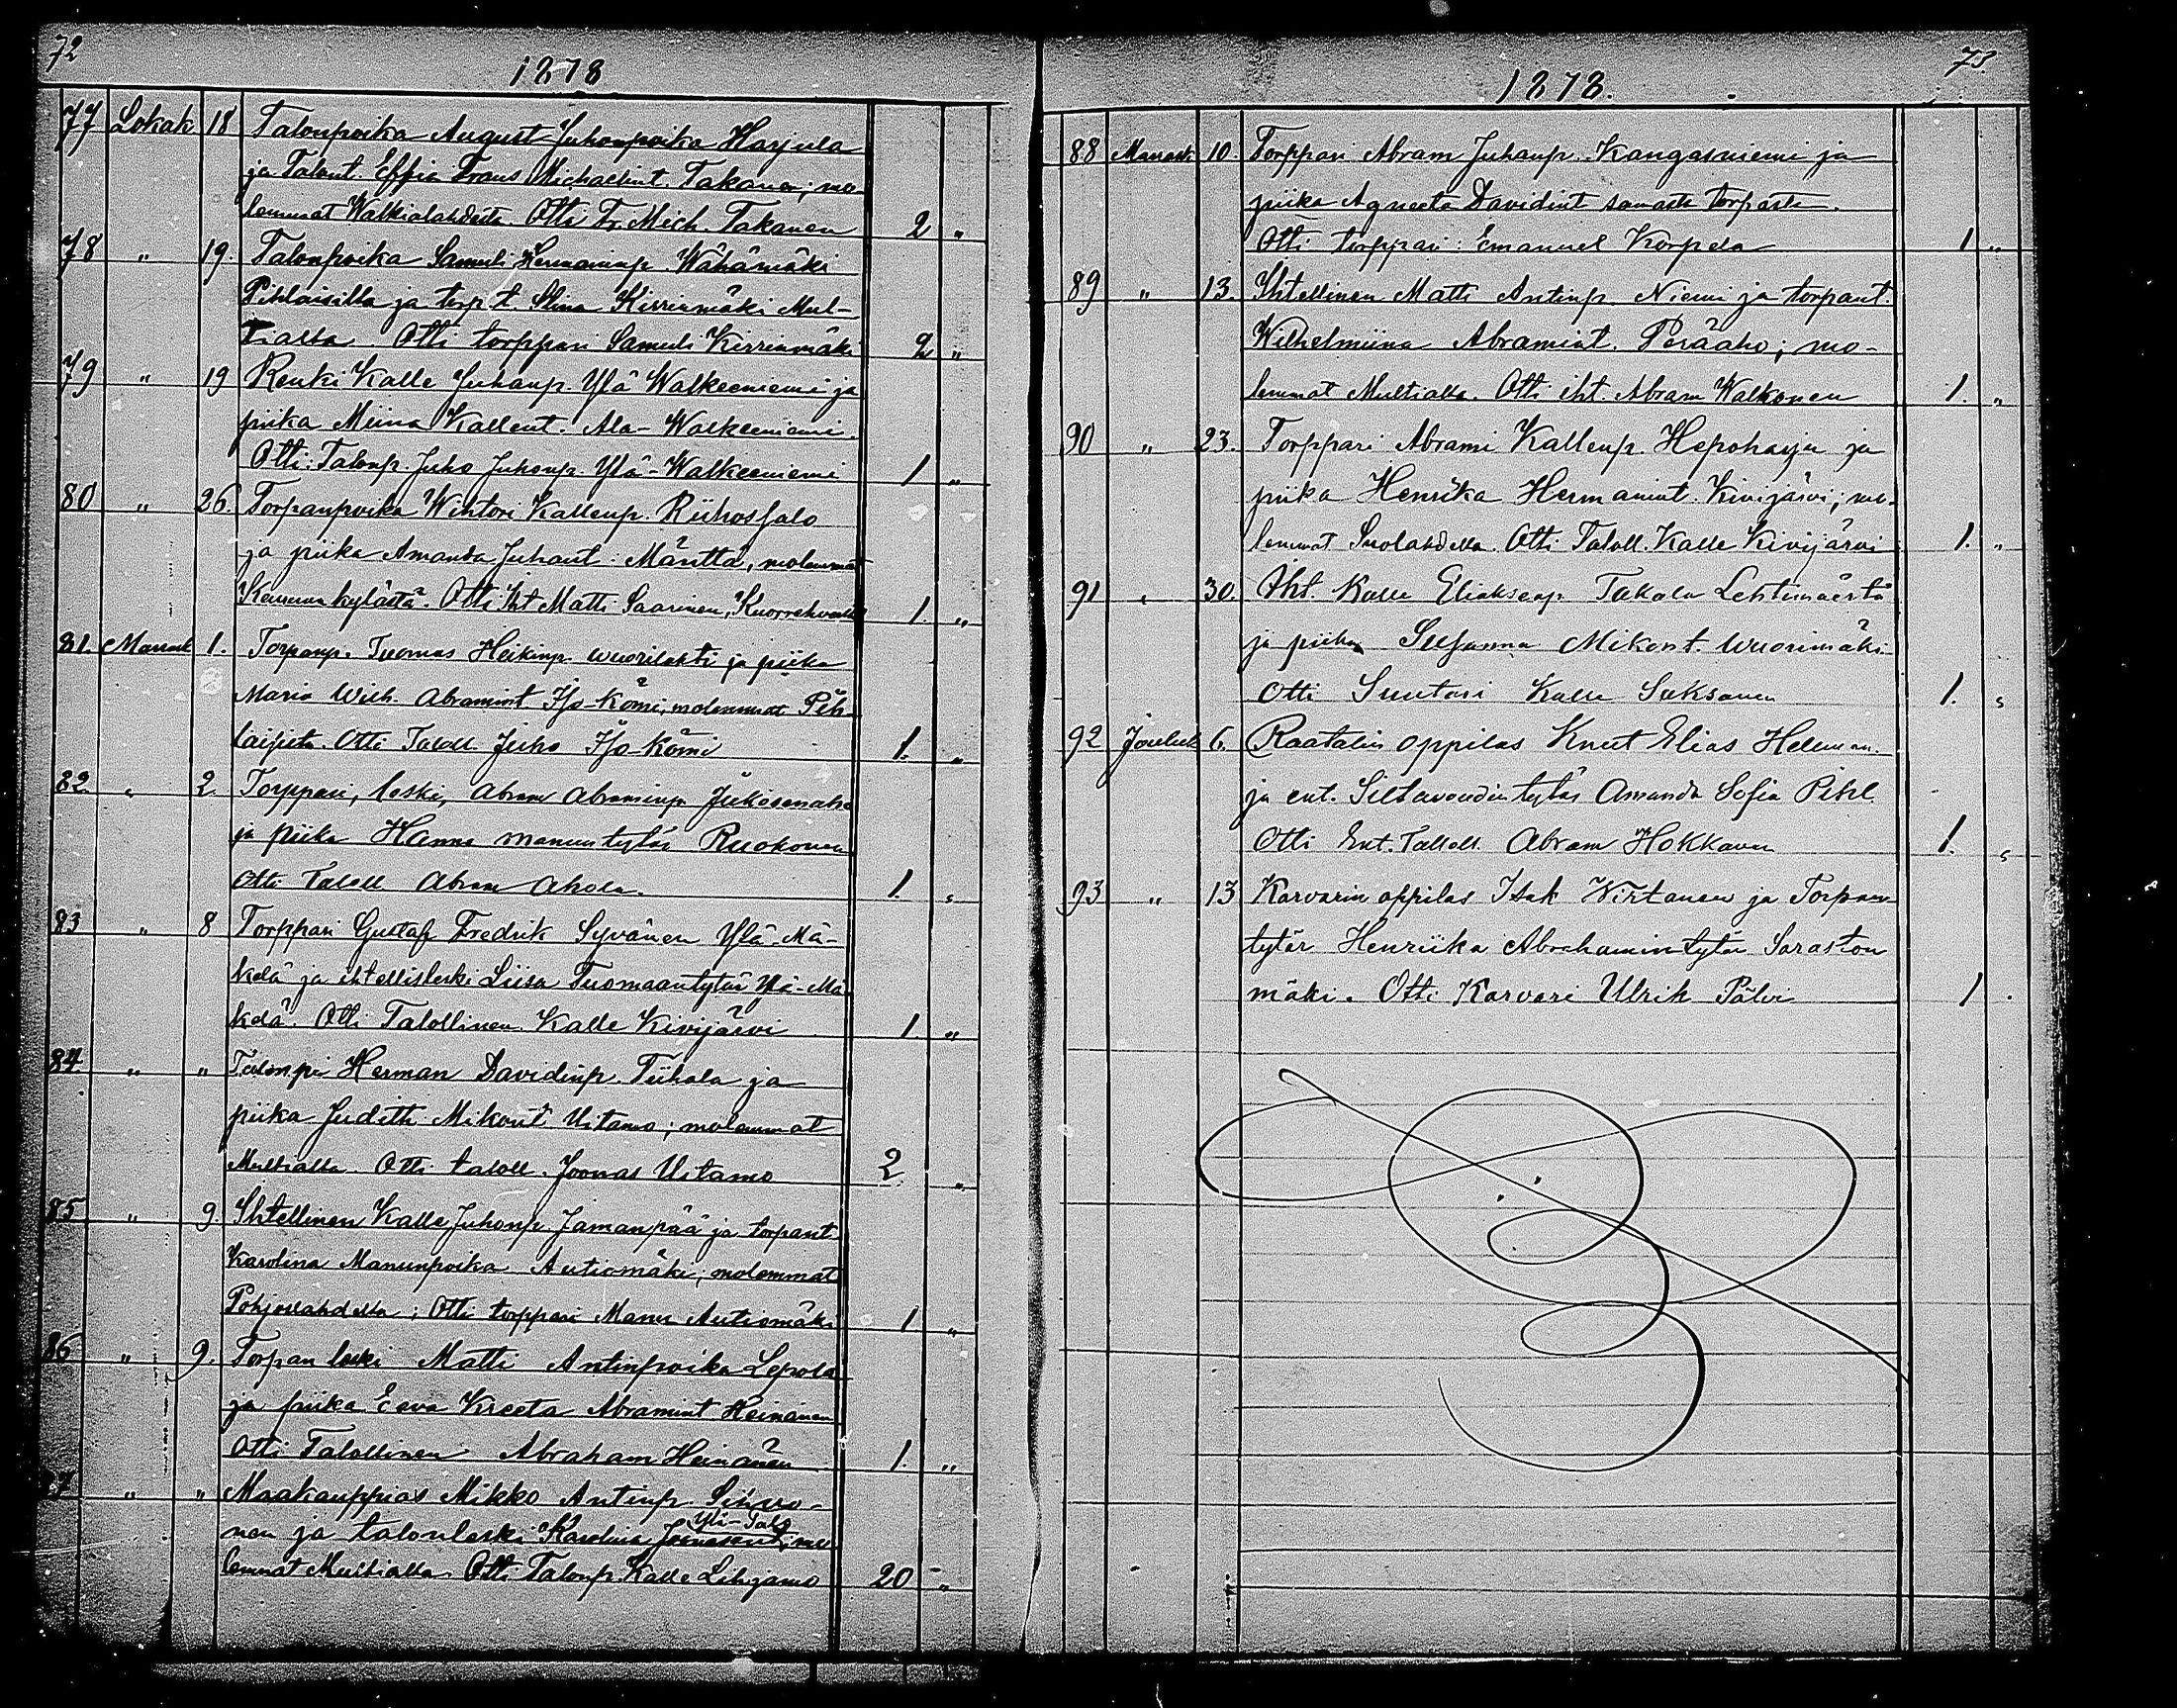 72
1878
77 Lokak 18 Talonpoika August Juhonpoika Harjula
ja Talont. Effia Frans Michaelint. Takanen; mo-
lemmat Walkialahdesta. Otti Fr. Mich. Takanen 2 "
78 " 19. Talonpoika Samuli Hermaninp. Wähämäki
Pihlaisilta ja torp. t. Stina Kirrinmäki Mul-
tialta. Otti torppari Samuli Kirrinmäki 2 "
79 " 19 Renki Kalle Juhanp. Ylä Walkeeniemi ja
piika Miina Kallent. Ala-Walkeeniemi.
Otti: Talonp. Juho Juhonp. Ylä-Walkeeniemi 1 "
80 " 26. Torpanpoika Wihtori Kallenp. Riihosalo
ja piika Amanda Juhant. Mänttä, molemmat
Keuruun kylästä. Otti Iht Matti Saarinen, 1. "
81. Marrask 1. Torpanp. Tuomas Heikinp. Wuorilahti ja piika
Maria Wilh. Abramint Iso-Kömi, molemmat Pih-
laiseta. Otti Taloll. Juho Iso-Kömi 1. "
82. " 2. Torppari, leski, Abram Abraminp Jukosenaho
ja piika Hanna Manuntytär Ruokonen
Otti Taloll Abram Ahola. 1. "
83 " 8 Torppari Gustaf Fredrik Syvänen Ylä-Mä-
kelä ja ihtellisleski Liisa Tuomaantytär Ylä-Mä-
kelä. Otti Talollinen Kalle Kivijärvi 1. "
84 " " Talonpi Herman Davidinp. Tiihala ja
piika Judith Mikont Uitamo; molemmat
Multialta. Otti taloll. Joonas Uitamo 2. "
85 " 9. Ihtellinen Kalle Juhonp. Jamanpää ja torpant
Karolina Manunpoika Autiomäki; molemmat
Pohjoslahdelta; Otti torppari Manu Autiomäki 1 "
86 " 9. Torpan leski Matti Antinpoika Lepola
ja piika Eeva Kreeta Abramint Heinänen
Otti Talollinen Abraham Heinänen 1. "
87 " " Maakauppias Mikko Antinp. Sihvo-
Yli-Talo
nen ja talonleski Karolina Joonaxent; mo-
lemmat Multialta Otti Talonp. Kalle Lihjamo 20 "
73.
1878.
88 Marrask 10. Torppari Abram Juhanp. Kangasniemi ja
piika Agneeta Davidint samasta torpasta.
Otti torppari: Emanuel Korpela 1 "
89 " 13. Ihtellinen Matti Antinp. Niemi ja torpant.
Wilhelmiina Abramint. Perääho; mo-
lemmat Multialta. Otti iht. Abram Walkonen 1. "
90 " 23. Torppari Abrami Kallenp. Hepoharju ja
piika Henrika Hermanint. Kivijärvi; mo-
lemmat Suolahdelta. Otti Taloll. Kalle Kivijärvi 1. "
91 " 30. Iht. Kalle Eliaksenp Takala Lehtimäestä
ja piika Susanna Mikont. Wuorimäki
Otti Suutari Kalle Saksanen 1. "
92 Jouluk 6. Raatalin oppilas Knut Elias Hellman.
ja ent. Siltavoudin tytär Amanda Sofia Pihl.
Otti Ent. Talloll. Abram Hokkanen 1. "
93 " 13 Karvarin oppilas Isak Wirtanen ja Torpan
tytär Henriika Abrahamintytär Saraston
mäki. Otti Karvari Ulrik Pälvi 1.